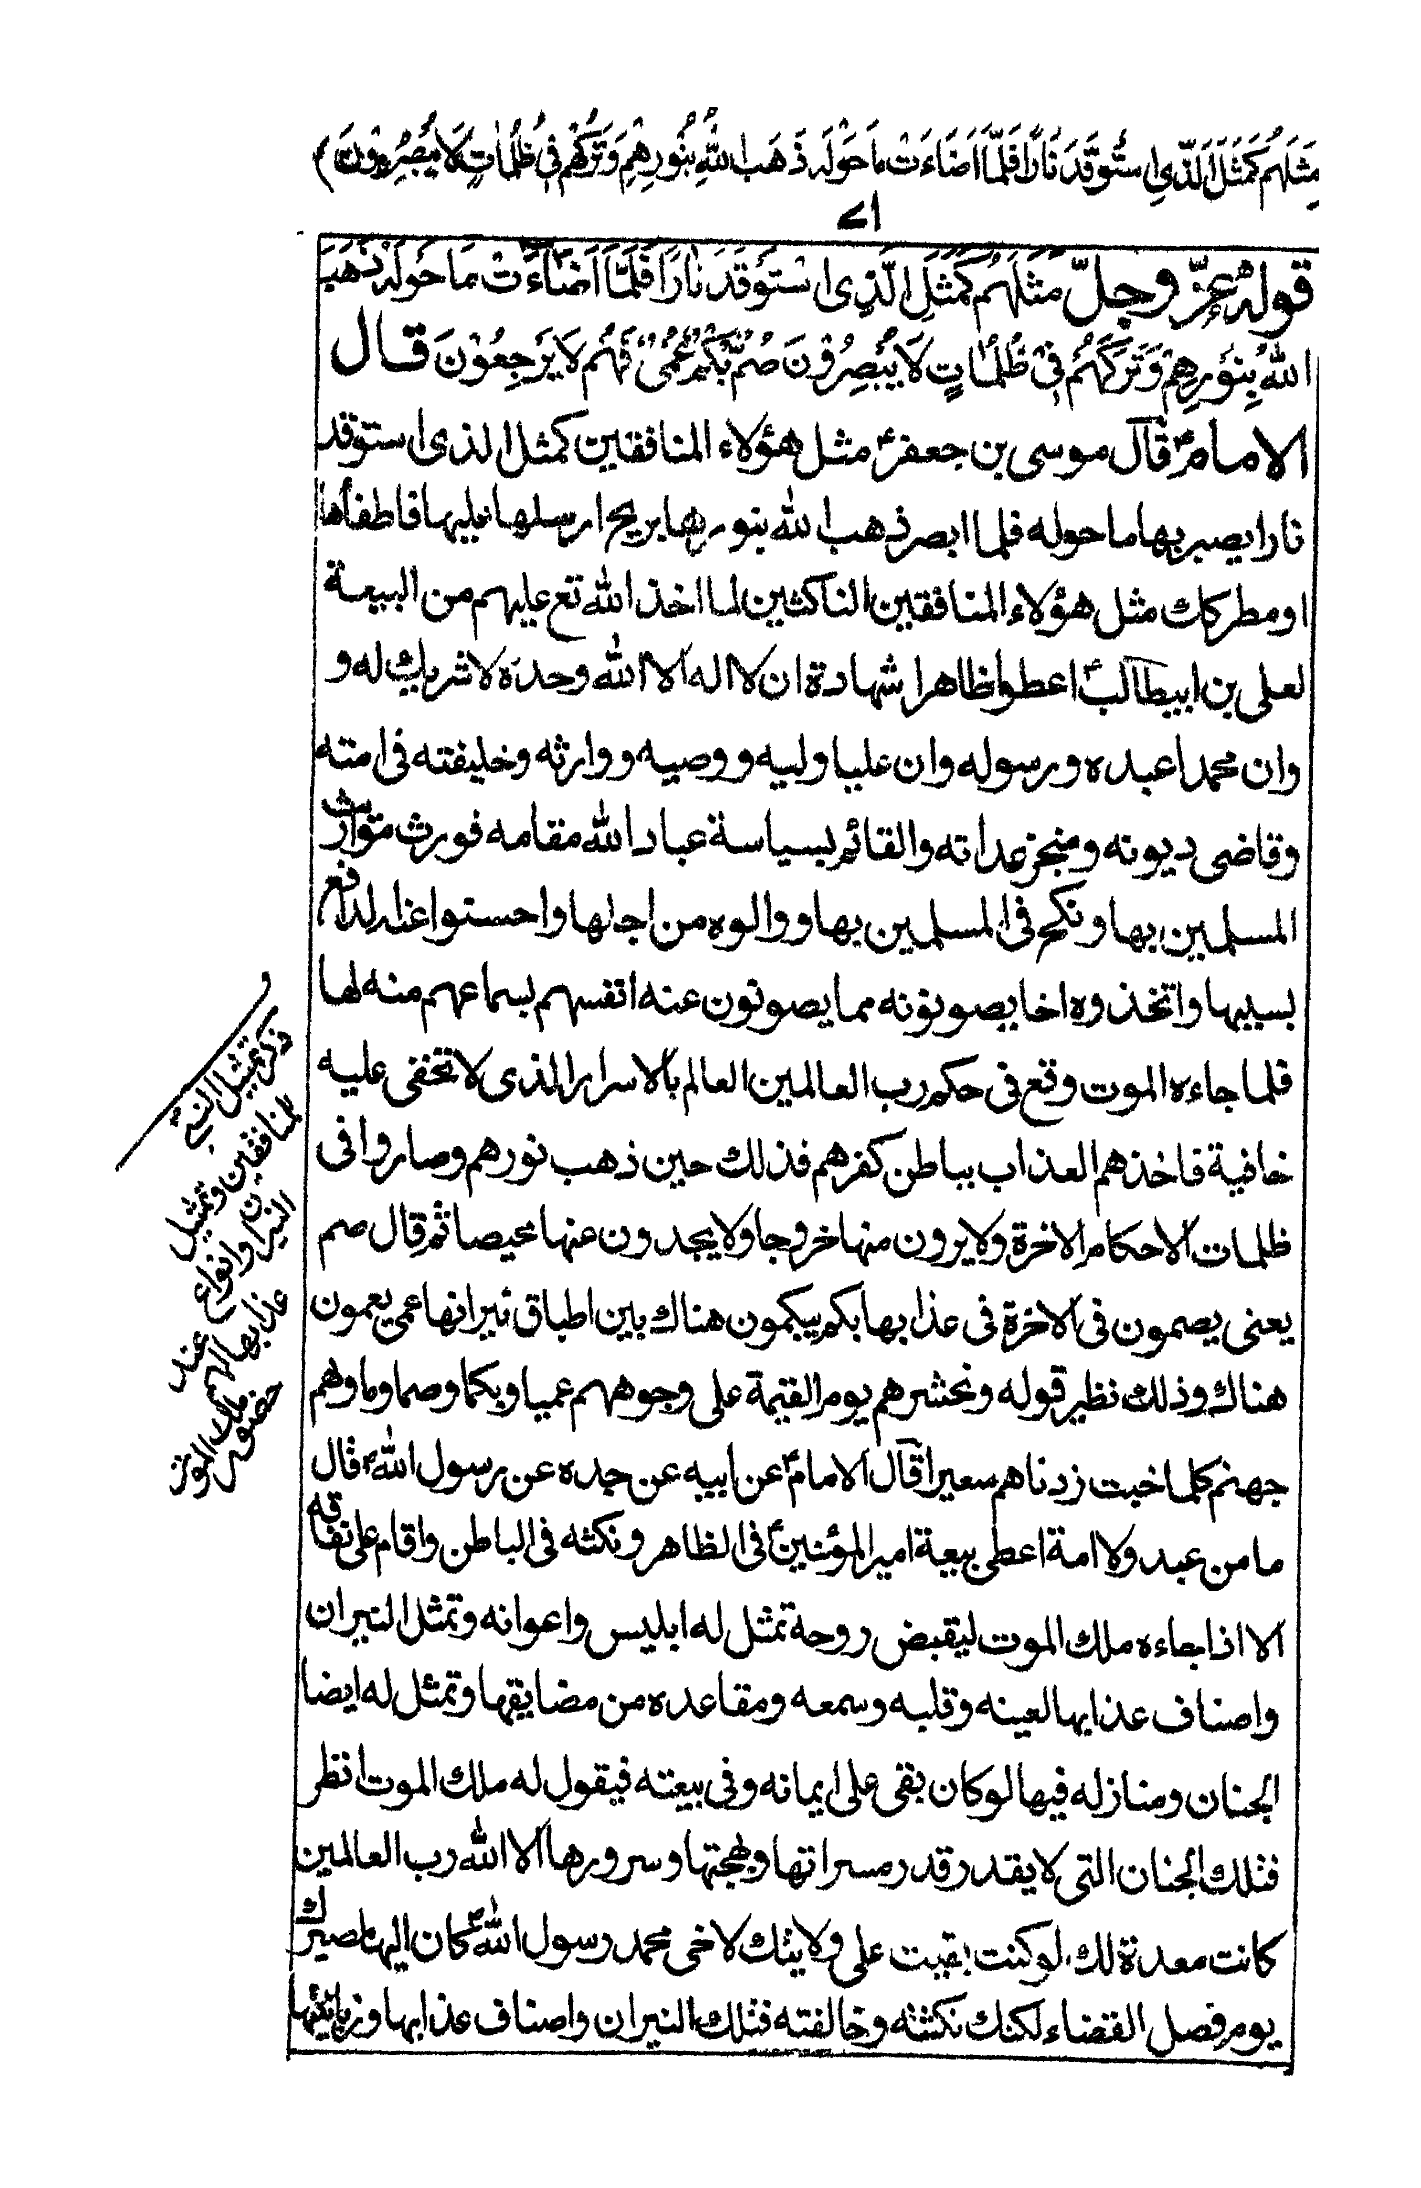 مَثَلُهُمْ كَمَثَلِ الَّذِي اسْتَوْقَدَ نَارًا فَلَمَّا اَضَاءَتْ مَا حَوْلَهُ ذَهَبَ اللّٰهُ بِنُورِهِمْ وَتَرَكَهُمْ فِي ظُلُمَاتٍ لَا يُبْصِرُونَ)
قوله عزّ وجلّ مَثَلُهُمْ كَمَثَلِ الَّذِي اسْتَوْقَدَ نَارًا فَلَمَّا اَضَاءَتْ مَا حَوْلَهُ ذَهَبَ
اللّٰهُ بِنُورِهِمْ وَتَرَكَهُمْ فِي ظُلُمَاتٍ لَا يُبْصِرُونَ صُمٌّ بُكْمٌ عُمْيٌ فَهُمْ لَا يَرْجِعُونَ قال
الامامؑ قال موسى بن جعفرؑ مثل هؤلاء المنافقين كمثل الذي استوقد
نارا يصبر بها ما حوله فلما ابصر ذهب الله بنورها بريح ارسلها عليها فاطفأها
او مطر كك مثل هؤلاء المنافقين الناكثين لما اخذ الله تع عليهم من البيعة
لعلى بن ابيطالبؑ اعطوا ظاهرا شهادة ان لا اله الا الله وحده لا شريك له و
وان محمدا عبده ورسوله وان عليا وليه و ووصيه و وارثه وخليفته في امته
وقاضى ديونه ومنجز عداته والقائم بسياسة عباد الله مقامه فورث مواريث
المسلمين بها ونكح في المسلمين بها ووالوه من اجلها واحسنوا عنه الدفع
بسببها واتخذوه اخا يصونونه مما يصونون عنه انفسهم بسماعهم منه لها
فلما جاءه الموت وقع في حكم رب العالمين العالم بالاسرار الذى لا تخفى عليه
خافية فاخذهم العذاب بباطن كفرهم فذلك حين ذهب نورهم وصاروا في
ظلمات الاحكام الاخرة ولا يرون منها خروجا ولا يجدون عنها محيصا ثم قال صم
يعنى يصمون في الاخرة في عذابها بكم يبكمون هناك بين اطباق نيرانها عمى يعمون
هناك وذلك نظير قوله ونحشرهم يوم القيمة على وجوههم عميا وبكما وصما وماويهم
جهنم كلما خبت زدناهم سعيرا قال الامامؑ عن ابيه عن جده عن رسول اللهؐ قال
ما من عبد ولا امة اعطى بيعة امير المؤمنينؑ في الظاهر ونكثه في الباطن واقام على نفاقه
الا اذا جاءه ملك الموت ليقبض روحة تمثل له ابليس واعوانه وتمثل النيران
واصناف عذابها لعينه وقلبه وسمعه ومقاعده من مضايقها وتمثل له ايضا
الجنان ومنازله فيها لو كان بقى على ايمانه وفي بيعته فيقول له ملك الموت انظر
فتلك الجنان التى لا يقدر قدر مسراتها وبهجتها وسرورها الا الله رب العالمين
كانت معدة لك لو كنت بقيت على ولايتك لاخى محمد رسول اللهؐ كان اليها مصيرك
يوم فصل القضاء لكنك نكثته وخالفته فتلك النيران واصناف عذابها وزبانيتها
ذكر تمثيل النبيؐ
لمنافقين وتمثيل
النيران وانواع
عذابها لهم عند
حضور ملك الموت